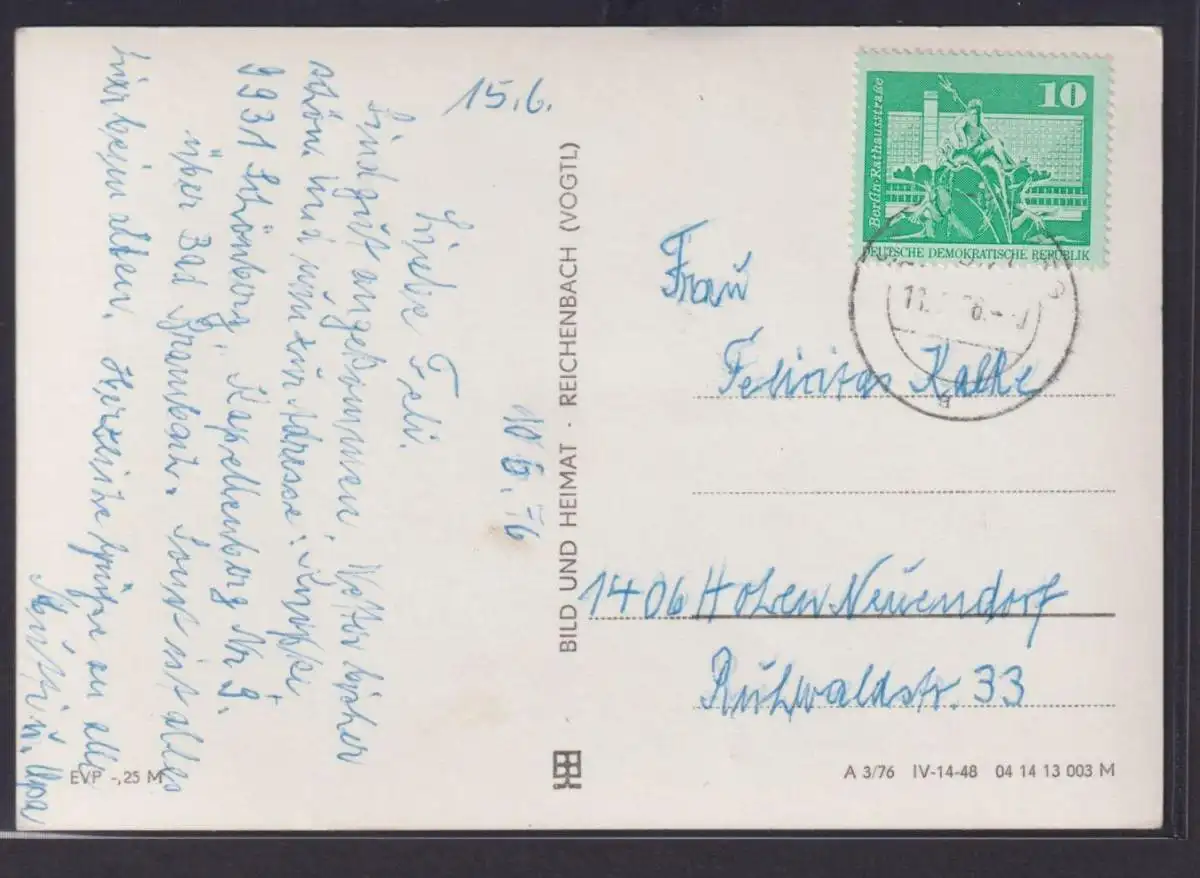 15.6.
10 6. 76
Liebe Feli.
Sind gut angekommen. Wetter bisher
schön. Und nun zur Adresse:
9931 Schönberg, Kapellenberg Nr. 9.
über Bad Brambach. Sonst ist alles
hier beim alten. Herzliche Grüße an alle
Mutti u. Opa
EVP -,25 M
BILD UND HEIMAT · REICHENBACH (VOGTL)
10
Berlin·Rathausstraße
DEUTSCHE DEMOKRATISCHE REPUBLIK
Frau
Felicitas Kalke
1406 Hohen Neuendorf
Ruhwaldstr. 33
A 3/76 IV-14-48 04 14 13 003 M